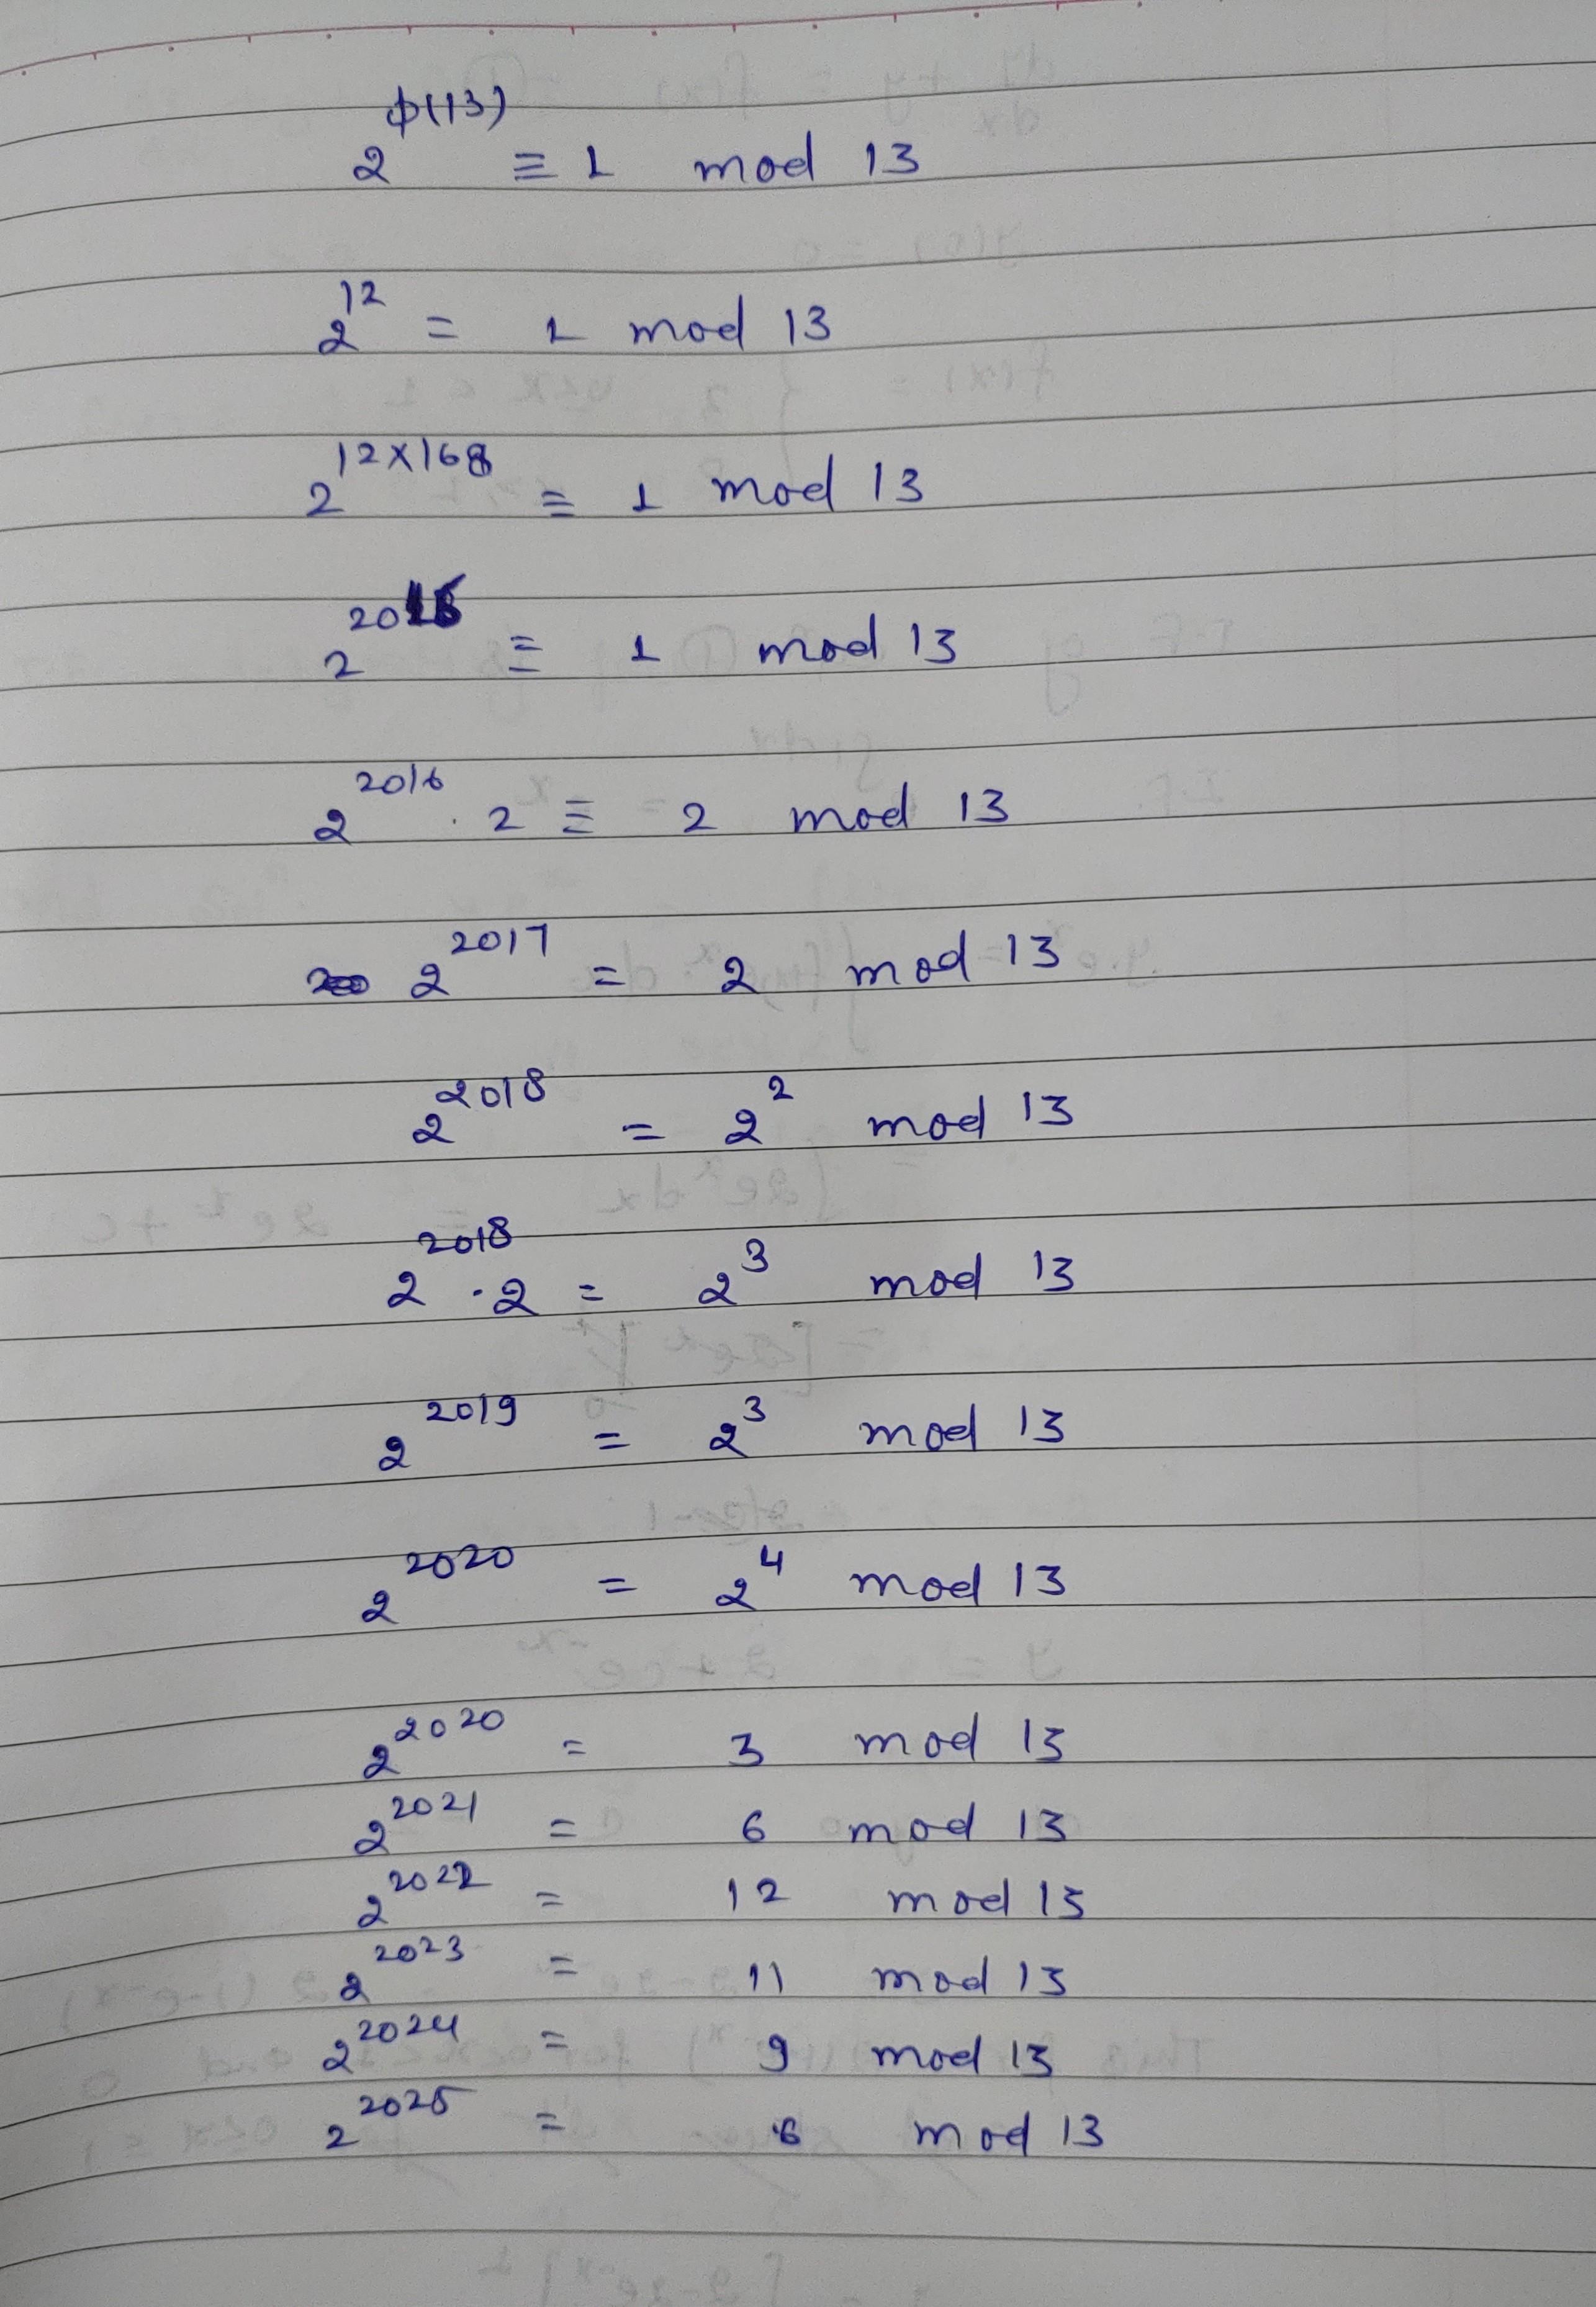 2^φ(13) ≡ 1 mod 13
2^12 = 1 mod 13
2^12×168 ≡ 1 mod 13
2^2016 ≡ 1 mod 13
2^2016 · 2 ≡ 2 mod 13
2^2017 = 2 mod 13
2^2018 = 2^2 mod 13
2^2018 · 2 = 2^3 mod 13
2^2019 = 2^3 mod 13
2^2020 = 2^4 mod 13
2^2020 = 3 mod 13
2^2021 = 6 mod 13
2^2022 = 12 mod 13
2^2023 = 11 mod 13
2^2024 = 9 mod 13
2^2025 = 6 mod 13